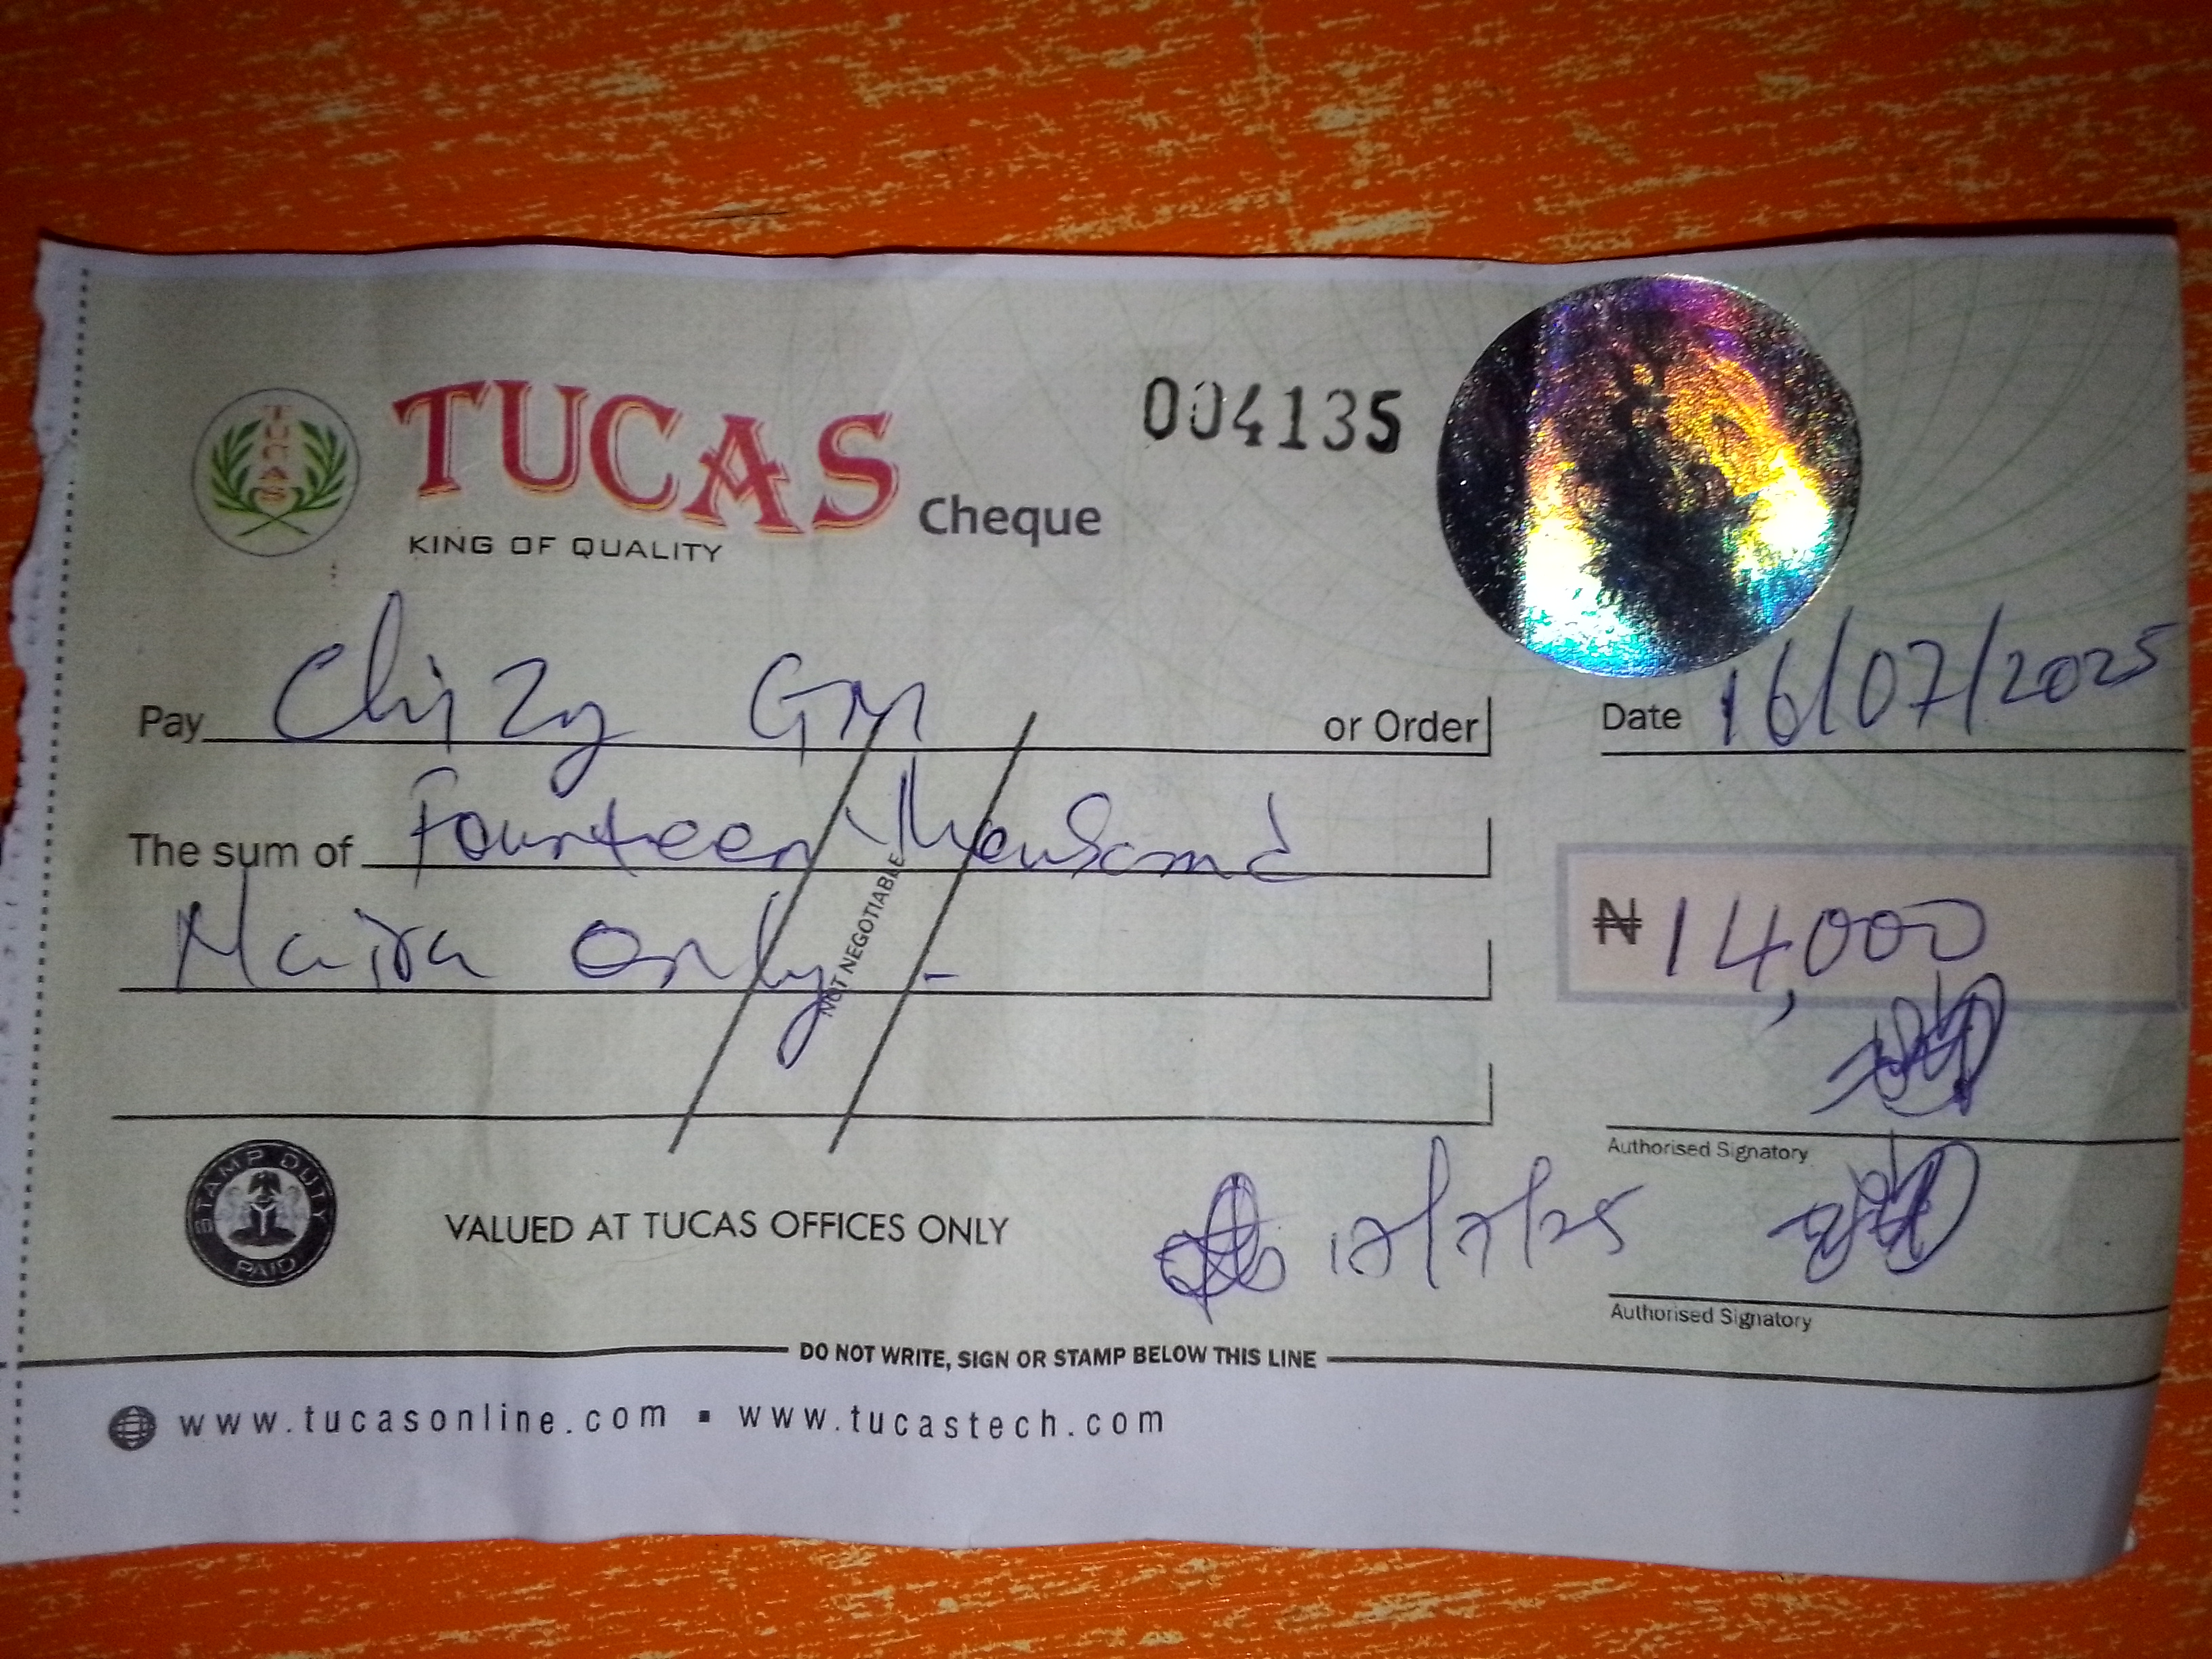 TUCAS
TUCAS
KING OF QUALITY
Cheque
004135
Pay Chizy Gm or Order
Date 16/07/2025
The sum of Fourteen thousand
Naira only -
₦ 14,000
NOT NEGOTIABLE
Authorised Signatory
STAMP DUTY
PAID
VALUED AT TUCAS OFFICES ONLY
17/7/25
Authorised Signatory
DO NOT WRITE, SIGN OR STAMP BELOW THIS LINE
www.tucasonline.com ▪ www.tucastech.com